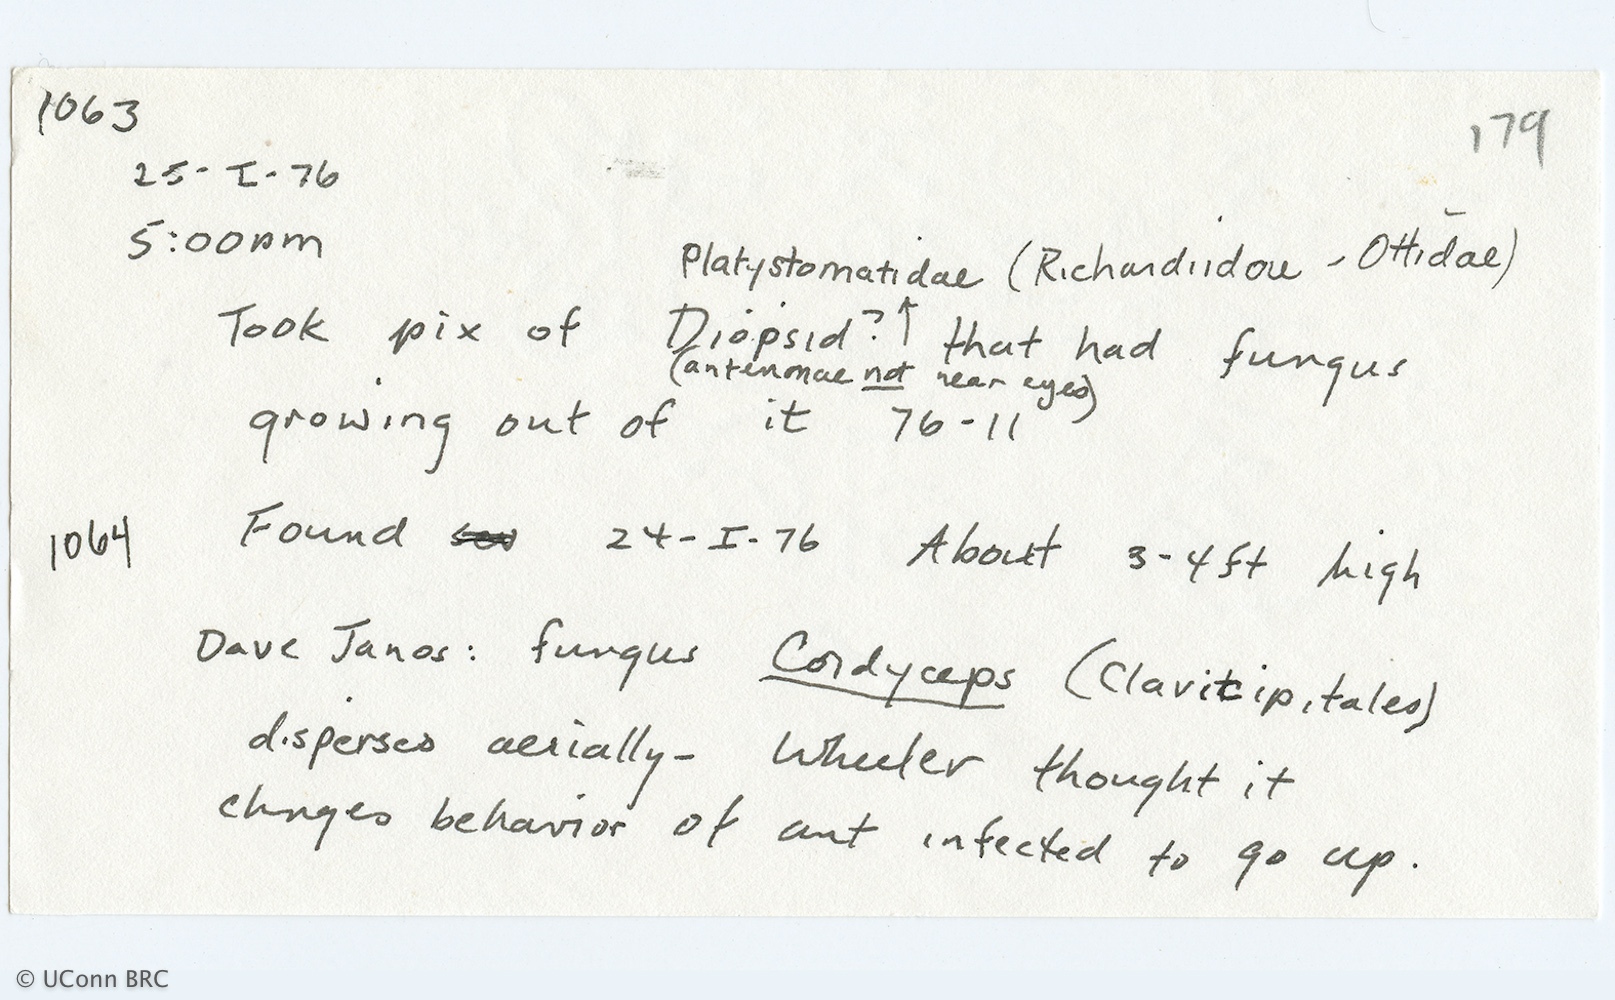 1063
179
25-I-76
5:00pm
Platystomatidae (Richardiidae, Ottidae)
Took pix of Diopsid?↑ that had fungus
(antennae not near eyes)
growing out of it 76-11
1064 Found 24-I-76 About 3-4ft high
Dave Janos: fungus Cordyceps (Clavicipitales)
disperses aerially- Wheeler thought it
changes behavior of ant infected to go up.
© UConn BRC